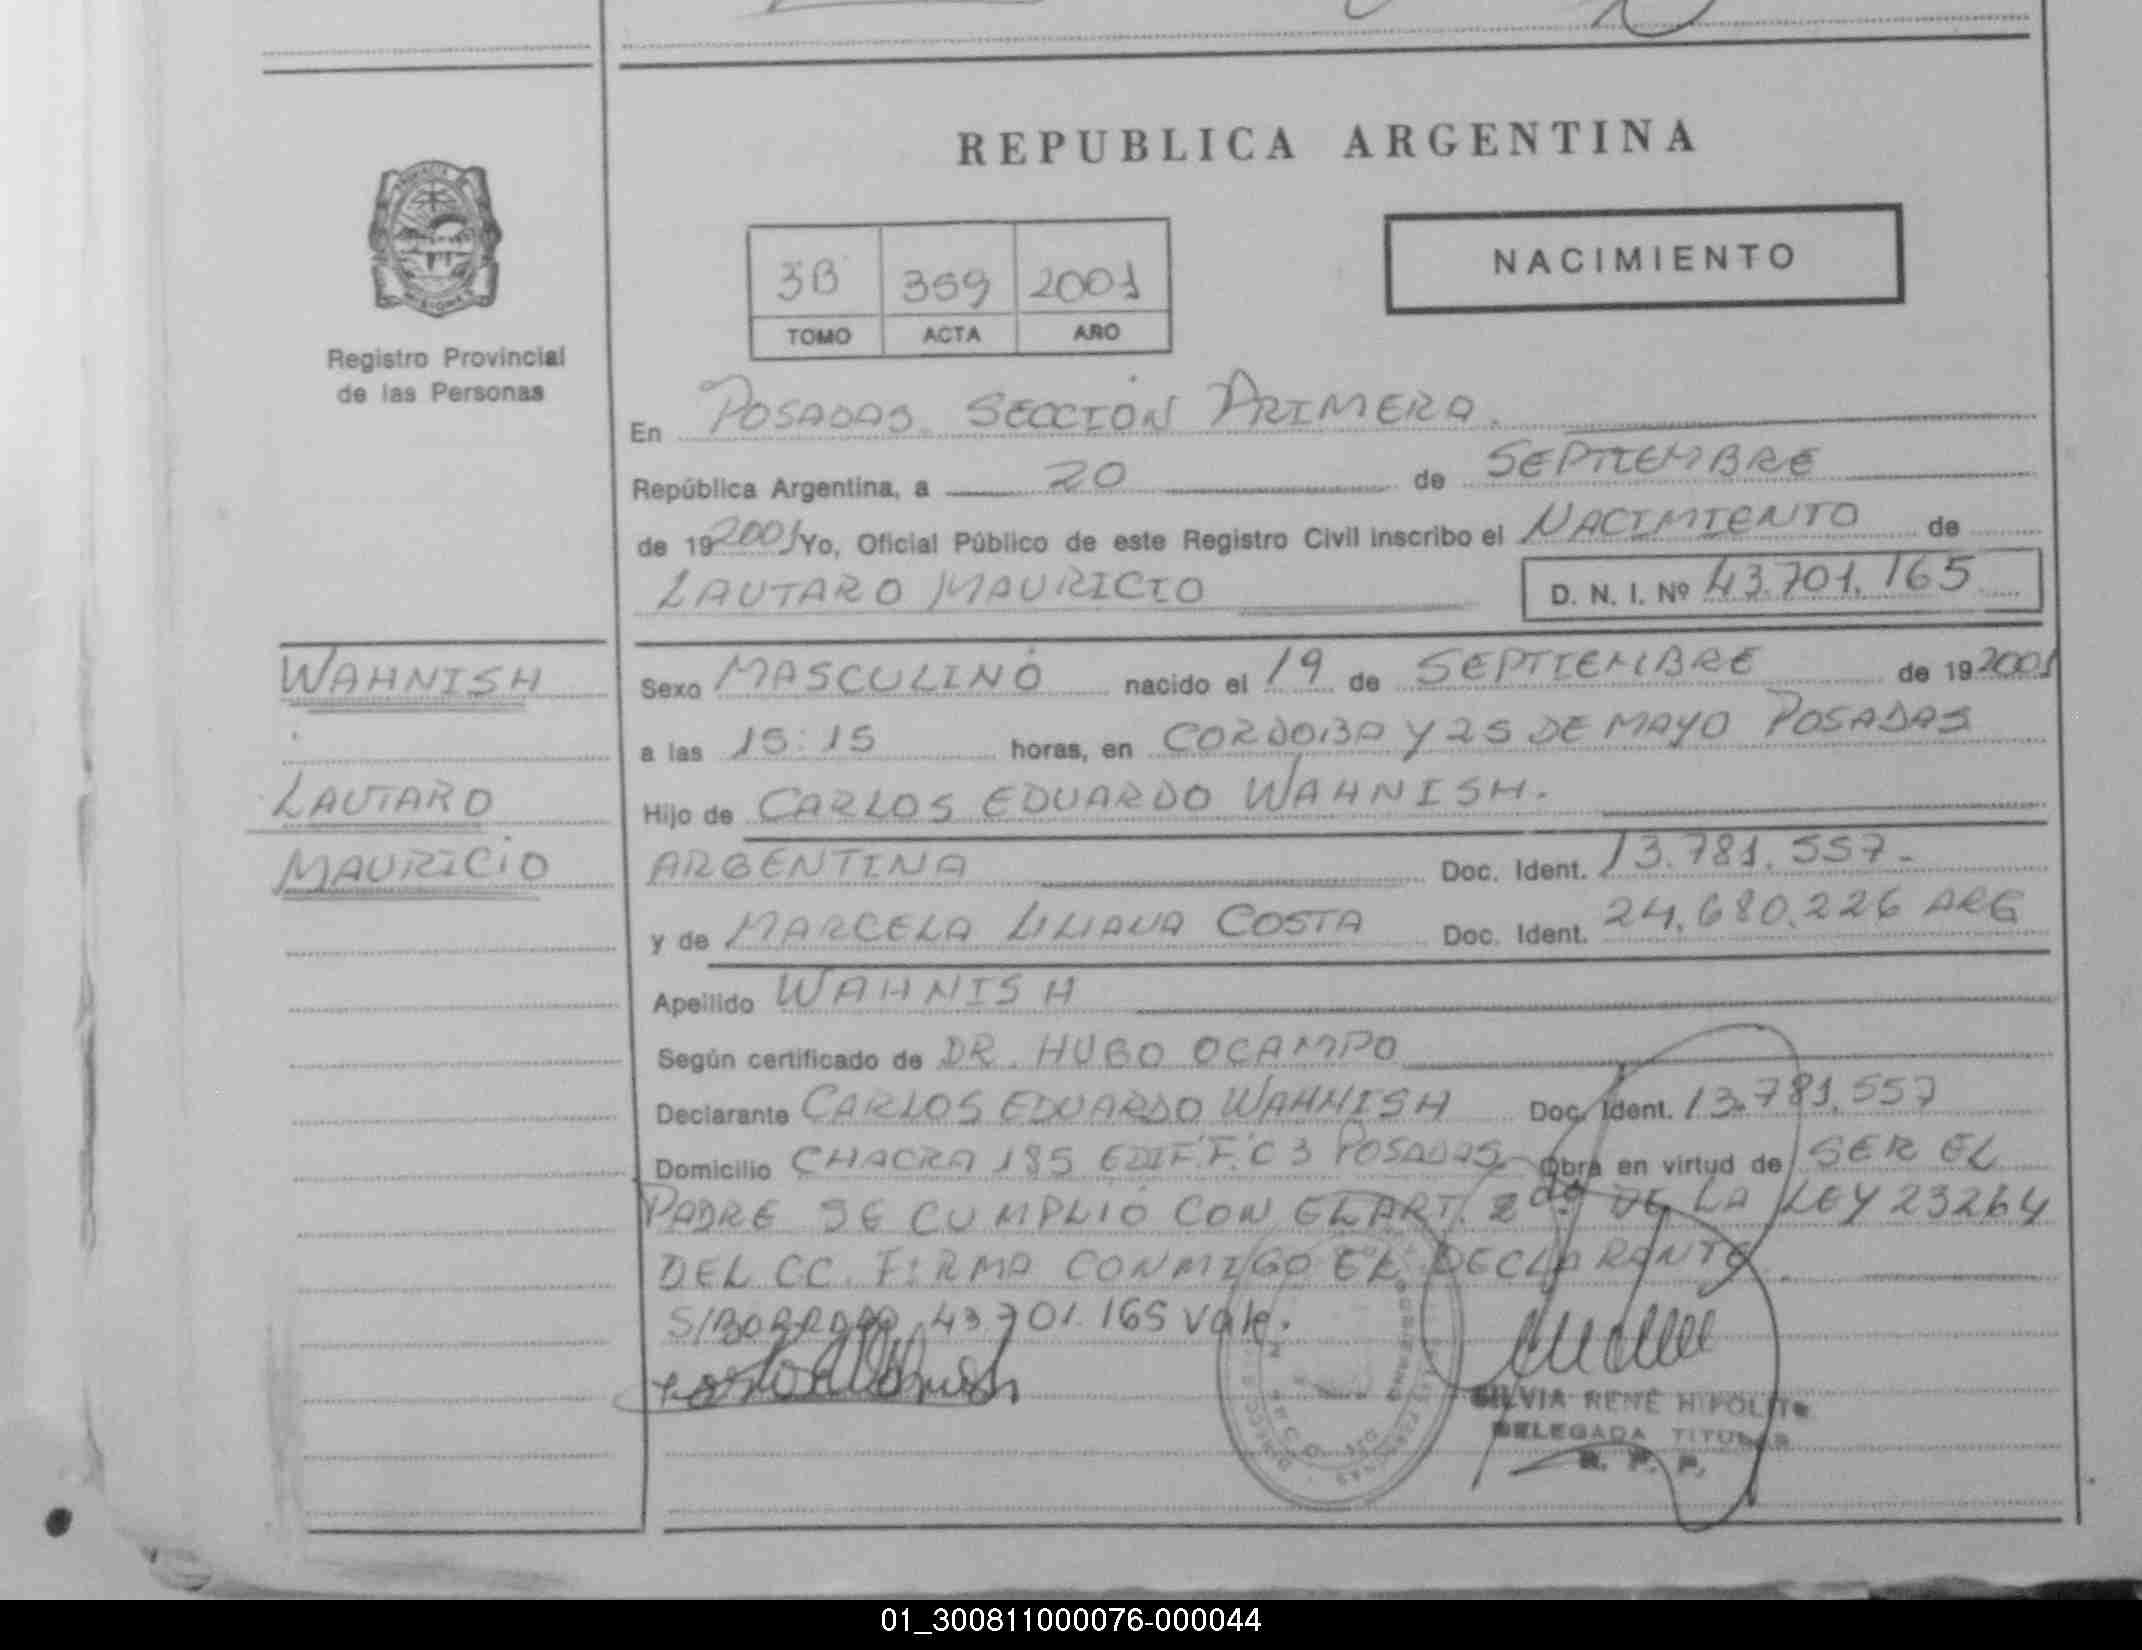 REPUBLICA ARGENTINA
NACIMIENTO
3B 359 2001
TOMO ACTA AÑO
Registro Provincial
de las Personas
En POSADAS SECCIÓN PRIMERA.
República Argentina, a 20 de SEPTIEMBRE
de 19 2001 Yo, Oficial Público de este Registro Civil inscribo el NACIMIENTO de
LAUTARO MAURICIO D. N. I. Nº 43.701.165
WAHNISH
LAUTARO
MAURICIO
Sexo MASCULINO nacido el 19 de SEPTIEMBRE de 19 2001
a las 15:15 horas, en CORDOBA Y 25 DE MAYO POSADAS
Hijo de CARLOS EDUARDO WAHNISH.
ARGENTINA Doc. Ident. 13.781.557.-
y de MARCELA LILIANA COSTA Doc. Ident. 24.680.226 ARG
Apellido WAHNISH
Según certificado de DR. HUGO OCAMPO
Declarante CARLOS EDUARDO WAHNISH Doc. Ident. 13.781.557
Domicilio CHACRA 185 EDIF.F.C 3 POSADAS Obra en virtud de SER EL
PADRE SE CUMPLIÓ CON EL ART. 2do DE LA LEY 23264
DEL CC. FIRMA CONMIGO EL DECLARANTE.
S/BORRADO 43 701.165 Vale.
SILVIA RENÉ HIPÓLITO
DELEGADA TITULAR
R. P. P.
01_300811000076-000044